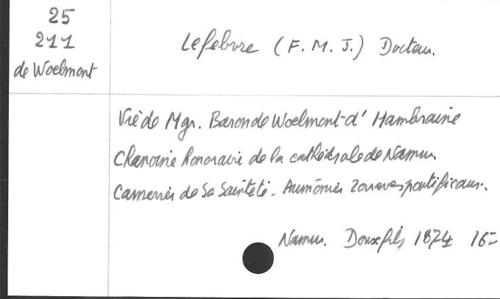 25
211
de Woelmont
Lefebvre (F. M. J.) Docteur.
Vie de Mgr. Baron de Woelmont-d'Hambraine
Chanoine honoraire de la cathédrale de Namur
Camerier de Sa Sainteté - Aumônier Zouaves pontificaux.
Namur. Douxfils 1874 16-